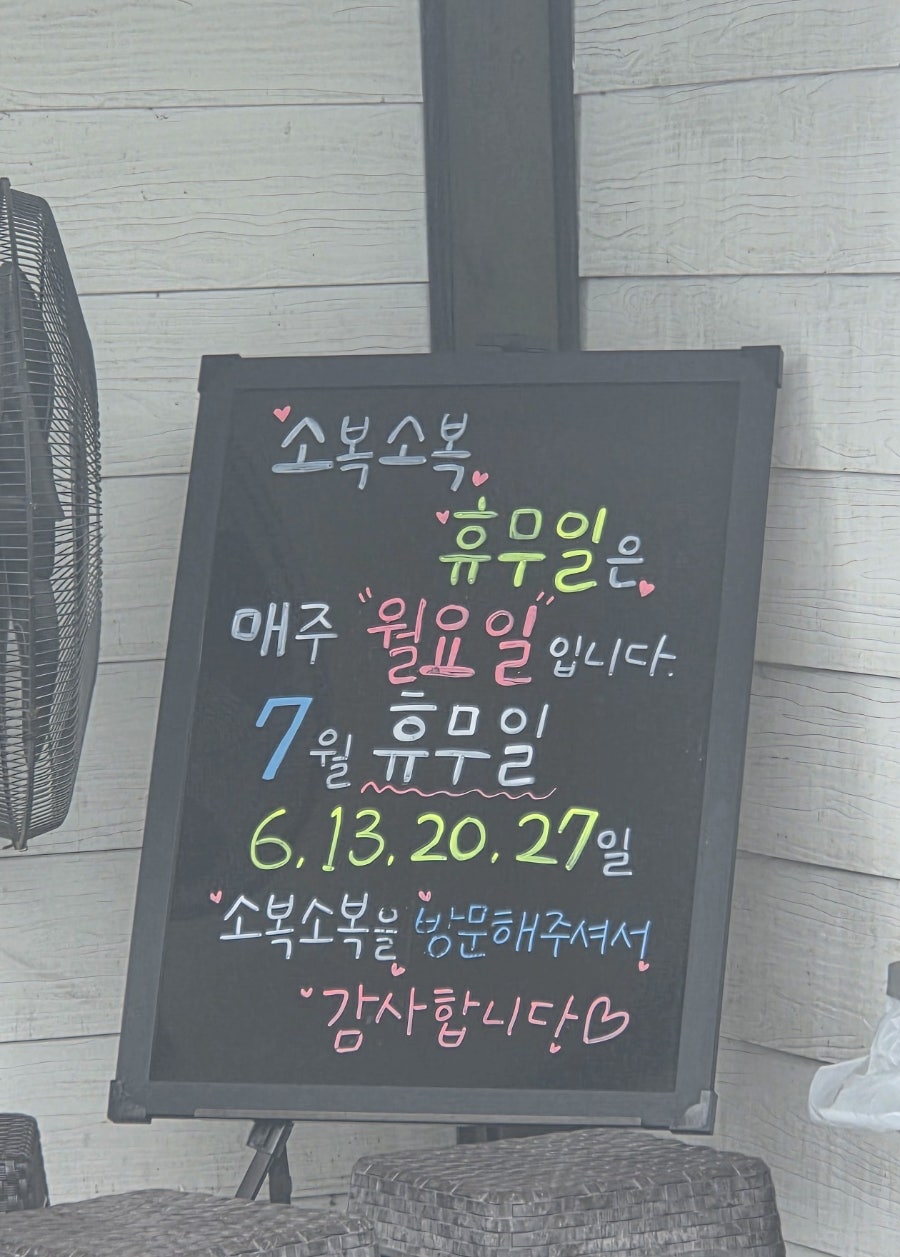 소복소복
휴무일은
매주 "월요일"입니다.
7월 휴무일
6.13.20.27일
소복소복을 방문해주셔서
감사합니다♡